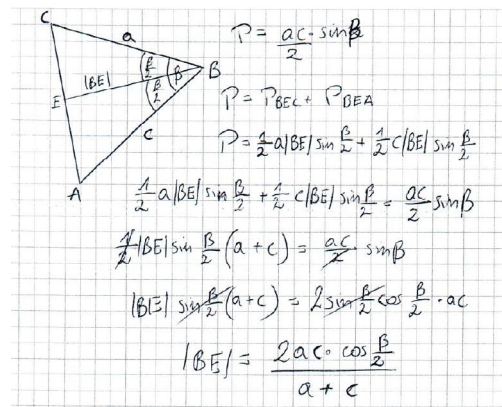 C
a
P = ac/2 · sinβ
|BE|
β/2
β
B
β/2
E
c
A
P = P_BEC + P_BEA
P = 1/2 a|BE| sin β/2 + 1/2 c|BE| sin β/2
1/2 a|BE| sin β/2 + 1/2 c|BE| sin β/2 = ac/2 sinβ
1/2 |BE| sin β/2 (a + c) = ac/2 · sinβ
|BE| sin β/2 (a + c) = 2 sin β/2 cos β/2 · ac
|BE| = 2ac · cos β/2 / a + c